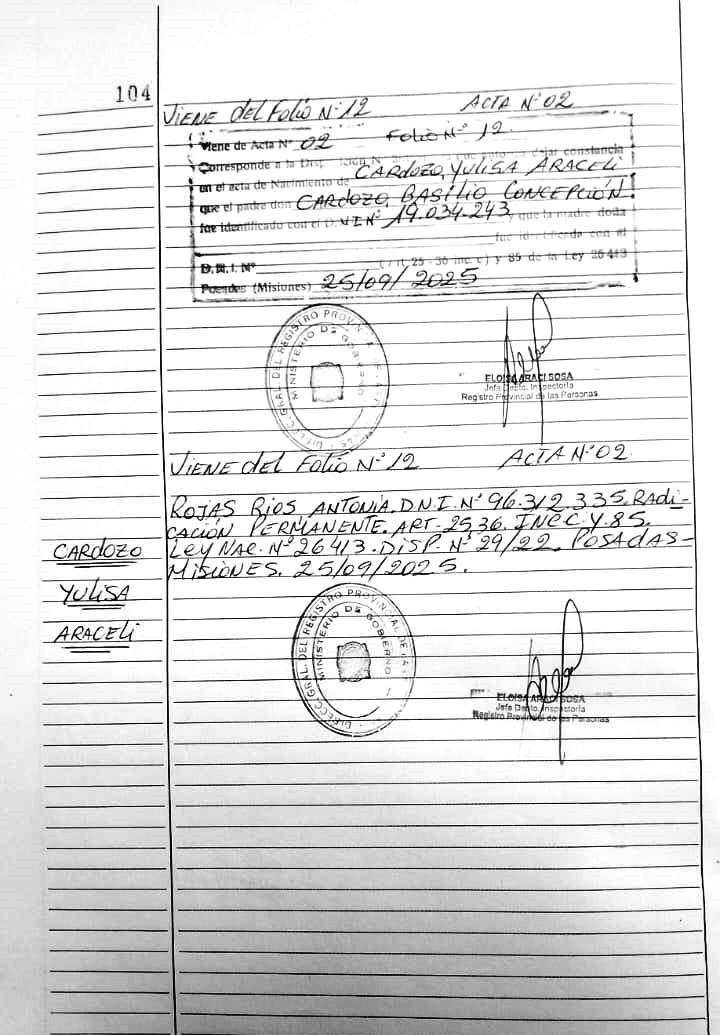 104
VIENE DEL FOLIO Nº 12 ACTA Nº 02
Viene de Acta Nº 02 FOLIO Nº 12.
Corresponde a la Disp. dejar constancia
en el acta de Nacimiento de CARDOZO, YULISA ARACELI
que el padre don CARDOZO, BASILIO CONCEPCIÓN.
fue identificado con el D. Nº 19.034.243, que la madre doña
fue identificada con el
D.N.I. Nº (Art. 25 - 36 inc. c) y 85 de la Ley 26413
Posadas (Misiones) 25/09/2025
DIRECC. GRAL. DEL REGISTRO PROVINCIAL DE LAS
MINISTERIO DE GOBIERNO
ELOISA ARACI SOSA
Jefa Depto. Inspectoría
Registro Provincial de las Personas
VIENE del FOLIO Nº 12 ACTA Nº 02.
ROJAS RIOS, ANTONIA. D.N.I. Nº 96.312.335. RADI-
CACIÓN PERMANENTE. ART. 25,36. INC.C.Y.85.
Ley NAC. Nº 26413. DISP. Nº 29/22. POSADAS-
MISIONES. 25/09/2025.
CARDOZO
YULISA
ARACELI
DIRECC. GRAL. DEL REGISTRO PROVINCIAL DE LAS
MINISTERIO DE GOBIERNO
ELOISA ARACI SOSA
Jefa Depto. Inspectoría
Registro Provincial de las Personas